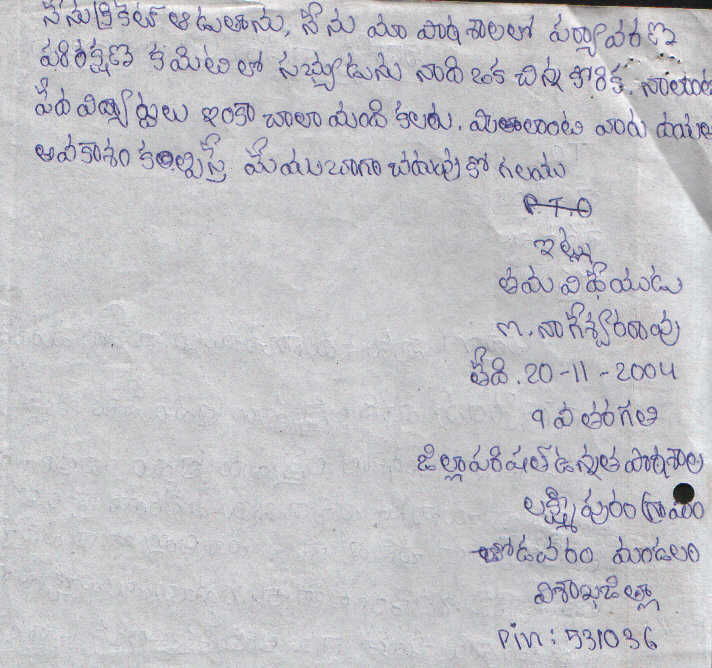 నేను క్రికెట్ ఆడుతాను, నేను మా పాఠశాలలో పర్యావరణ
పరిరక్షణ కమిటిలో సభ్యుడును నాది ఒక చిన్న కోరిక. నాలాంటి
పేద విద్యార్థులు ఇంకా చాలా మంది కలరు. మీలాంటి వారు
అవకాశం కల్పిస్తే మేము బాగా చదువుకో గలము
P.T.O
ఇట్లు
తమ విధేయుడు
గా. నాగేశ్వరరావు
తేది. 20-11-2004
9 వ తరగతి
జిల్లాపరిషత్ ఉన్నత పాఠశాల
లక్ష్మీపురం గ్రామం
చోడవరం మండలం
విశాఖజిల్లా
Pin: 531036